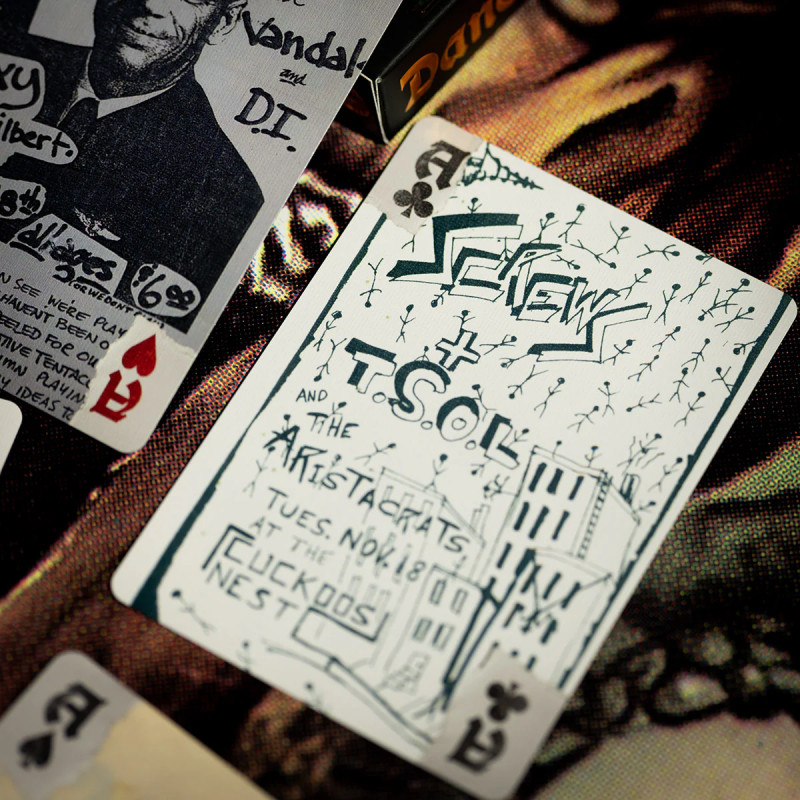 Vandal
and
D.I.
xy
ilbert.
8th
all ages
$6.00
N SEE WE'RE PLAY
HAVENT BEEN O
EELED FOR OU
TIVE TENTAC
MN PLAYIN
Y IDEAS TO
A
Dan
A
SCREWS
+
T.S.O.L
AND
THE
ARISTACRATS
TUES. NOV. 18
AT THE
CUCKOOS
NEST
A
A